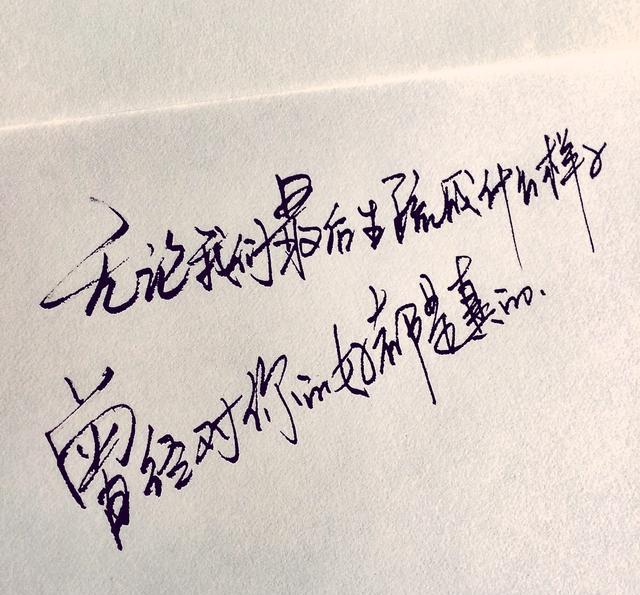 无论我们最后生疏成什么样子
曾经对你的好都是真的.